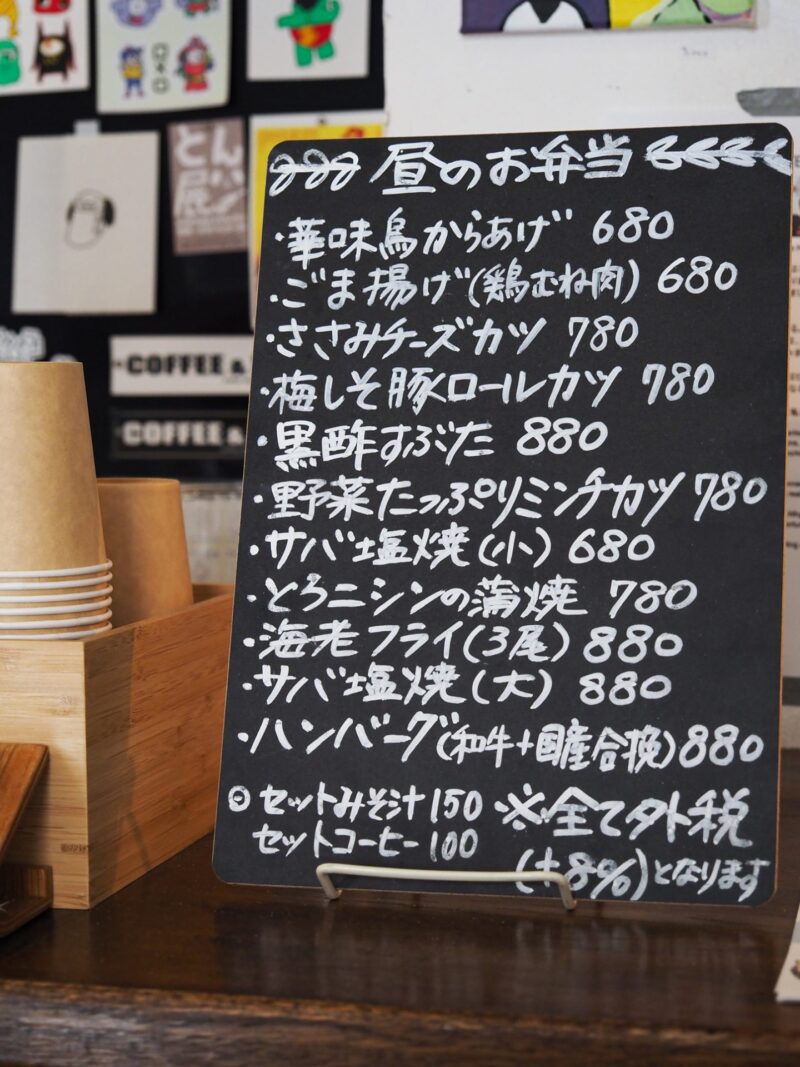 とんパン
展
COFFEE &
COFFEE &
昼のお弁当
・華味鳥からあげ 680
・ごま揚げ(鶏むね肉) 680
・ささみチーズカツ 780
・梅しそ豚ロールカツ 780
・黒酢すぶた 880
・野菜たっぷりミンチカツ 780
・サバ塩焼(小) 680
・とろニシンの蒲焼 780
・海老フライ(3尾) 880
・サバ塩焼(大) 880
・ハンバーグ(和牛+国産合挽) 880
◎セットみそ汁 150
セットコーヒー 100
※全て外税
(+8%)となります